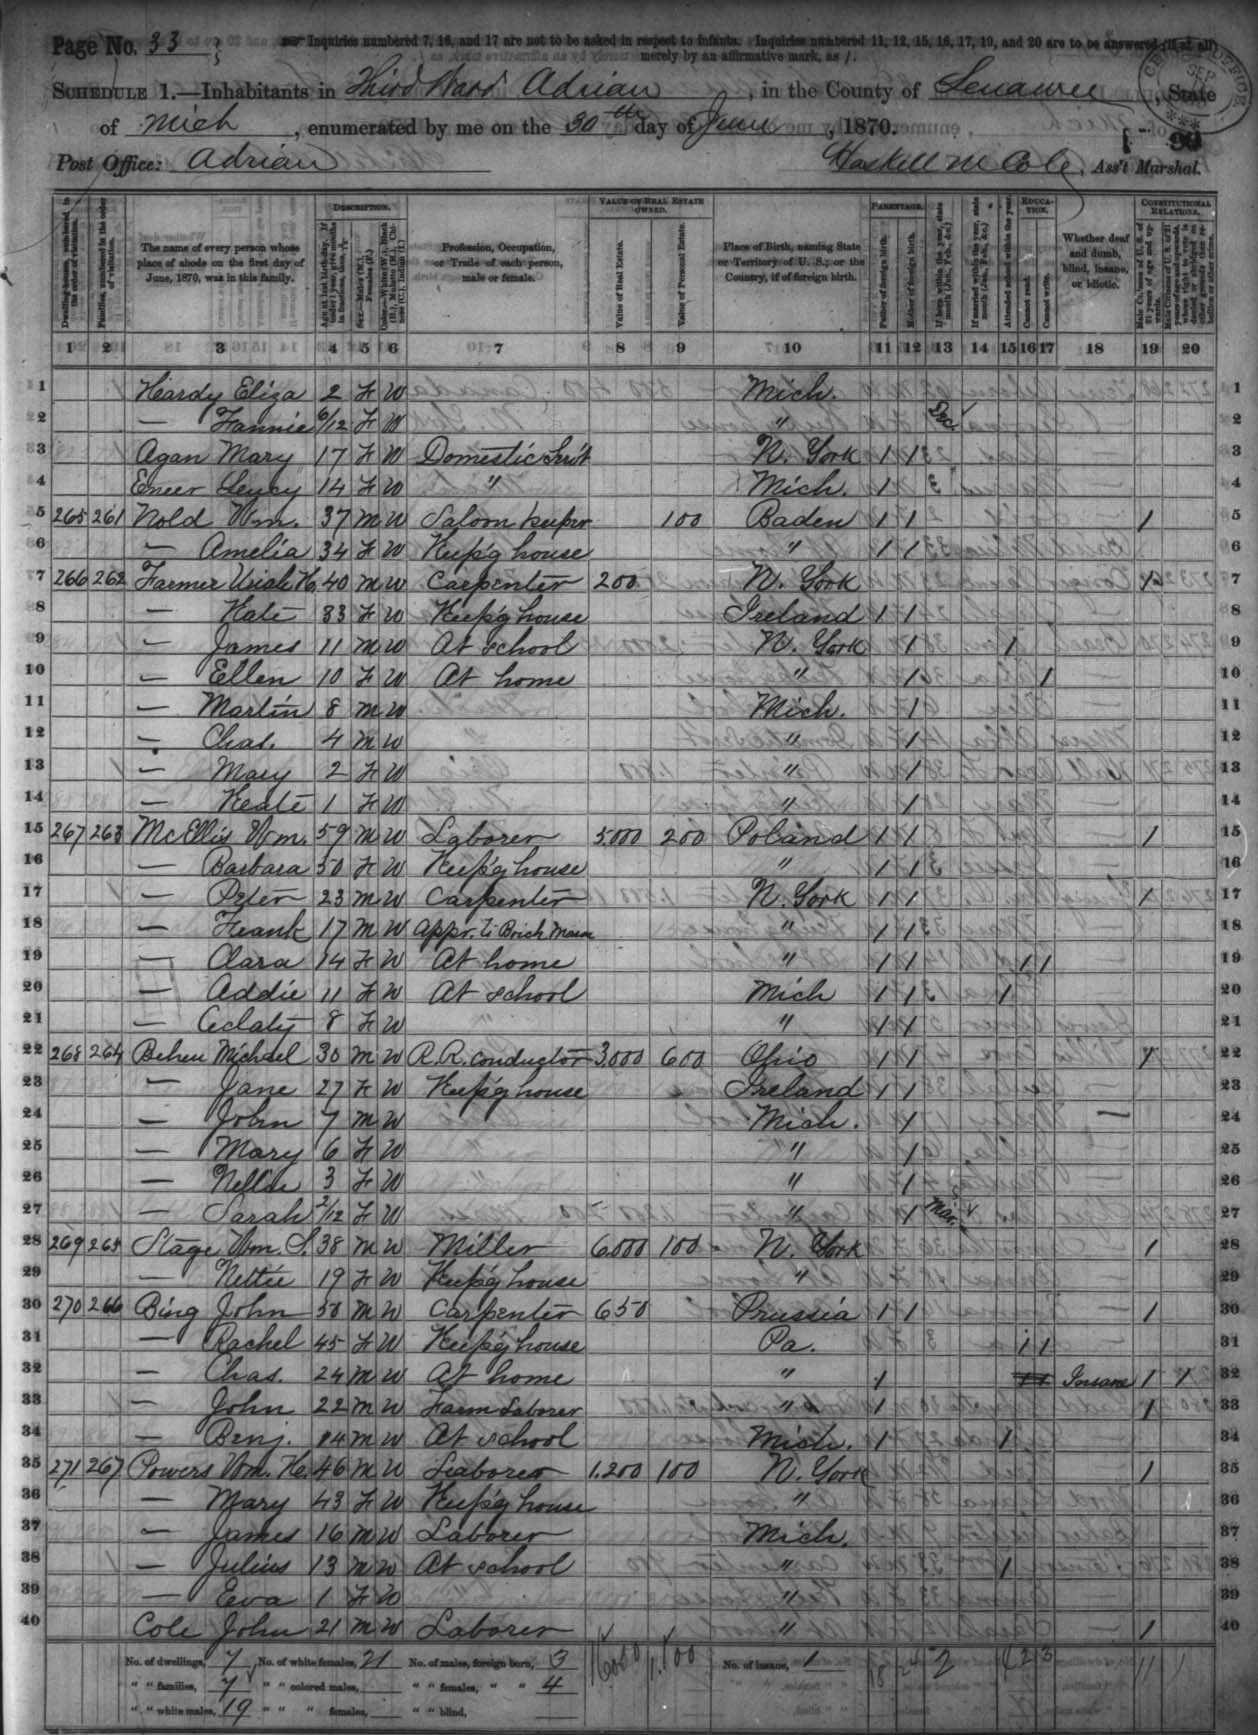 Page No. 33
Inquiries numbered 7, 16, and 17 are not to be asked in respect to infants. Inquiries numbered 11, 12, 15, 16, 17, 19, and 20 are to be answered (if at all)
merely by an affirmative mark, as /.
SCHEDULE 1.—Inhabitants in Third Ward Adrian, in the County of Lenawee, State
of Mich, enumerated by me on the 30th day of June, 1870.
Post Office: Adrian Haskell M Cole, Ass't Marshal.
DESCRIPTION. VALUE OF REAL ESTATE OWNED. PARENTAGE. EDUCATION. CONSTITUTIONAL RELATIONS.
Dwelling-houses, numbered in the order of visitation.
Families, numbered in the order of visitation.
The name of every person whose place of abode on the first day of June, 1870, was in this family.
Profession, Occupation, or Trade of each person, male or female.
Value of Real Estate.
Value of Personal Estate.
Place of Birth, naming State or Territory of U. S.; or the Country, if of foreign birth.
Father of foreign birth.
Mother of foreign birth.
If born within the year, state month (Jan., Feb., &c.)
If married within the year, state month (Jan., Feb., &c.)
Attended school within the year.
Cannot read.
Cannot write.
Whether deaf and dumb, blind, insane, or idiotic.
1 2 3 4 5 6 7 8 9 10 11 12 13 14 15 16 17 18 19 20
1 Hardy Eliza 2 F W Mich. 1
2 — Fannie 6/12 F W " Dec 2
3 Agan Mary 17 F W Domestic Serv't N. York 1 1 3
4 14 F W " Mich. 1 4
5 265 261 Nold Wm. 37 M W Saloon Keeper 100 Baden 1 1 1 5
6 — Amelia 34 F W Keep'g house " 1 1 6
7 266 262 Farmer Uriah H. 40 M W Carpenter 200 N. York 1 7
8 — Kate 33 F W Keep'g house Ireland 1 1 8
9 — James 11 M W At school N. York 1 1 9
10 — Ellen 10 F W At home " 1 1 10
11 — Martin 8 M W Mich. 1 11
12 — Chas. 4 M W " 1 12
13 — Mary 2 F W " 1 13
14 — Keate 1 F W " 1 14
15 267 263 McEllis Wm. 59 M W Laborer 5,000 200 Poland 1 1 1 15
16 — Barbara 50 F W Keep'g house " 1 1 16
17 — Peter 23 M W Carpenter N. York 1 1 1 17
18 — Frank 17 M W Appr. to Brick Mason " 1 1 18
19 — Clara 14 F W At home " 1 1 1 1 19
20 — Addie 11 F W At school Mich 1 1 1 20
21 — 8 F W " 1 1 21
22 268 264 Beheu Michael 30 M W R.R. Conductor 3,000 600 Ohio 1 1 1 22
23 — Jane 27 F W Keep'g house Ireland 1 1 23
24 — John 7 M W Mich. 1 — 24
25 — Mary 6 F W " 1 25
26 — Nellie 3 F W " 1 26
27 — Sarah 2/12 F W " 1 Mar. 27
28 269 265 Stage Wm. S. 38 M W Miller 6,000 100 N. York 1 28
29 — Nettie 19 F W Keep'g house " 29
30 270 266 Bing John 50 M W Carpenter 650 Prussia 1 1 1 30
31 — Rachel 45 F W Keep'g house Pa. 1 1 31
32 — Chas. 24 M W At home " 1 1 1 Insane 1 1 32
33 — John 22 M W Farm Laborer " 1 1 33
34 — Benj. 14 M W At school Mich. 1 1 34
35 271 267 Powers Wm. H. 46 M W Laborer 1,200 100 N. York 1 35
36 — Mary 43 F W Keep'g house " 36
37 — James 16 M W Laborer Mich. 37
38 — Julius 13 M W At school " 1 38
39 — Eva 1 F W " 39
40 Cole John 21 M W Laborer " 1 40
No. of dwellings, 7 No. of white females, 21 No. of males, foreign born, 3 No. of insane, 1
" " families, 7 " " colored males, " " females, " " 4
" " white males, 19 " " " females, " " blind,